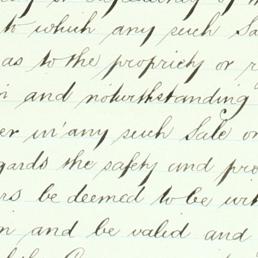 to which any such Sa
as to the propriety or r
and notwithstanding
er in any such Sale or
gards the safety and pro
rs be deemed to be wit
n and be valid and